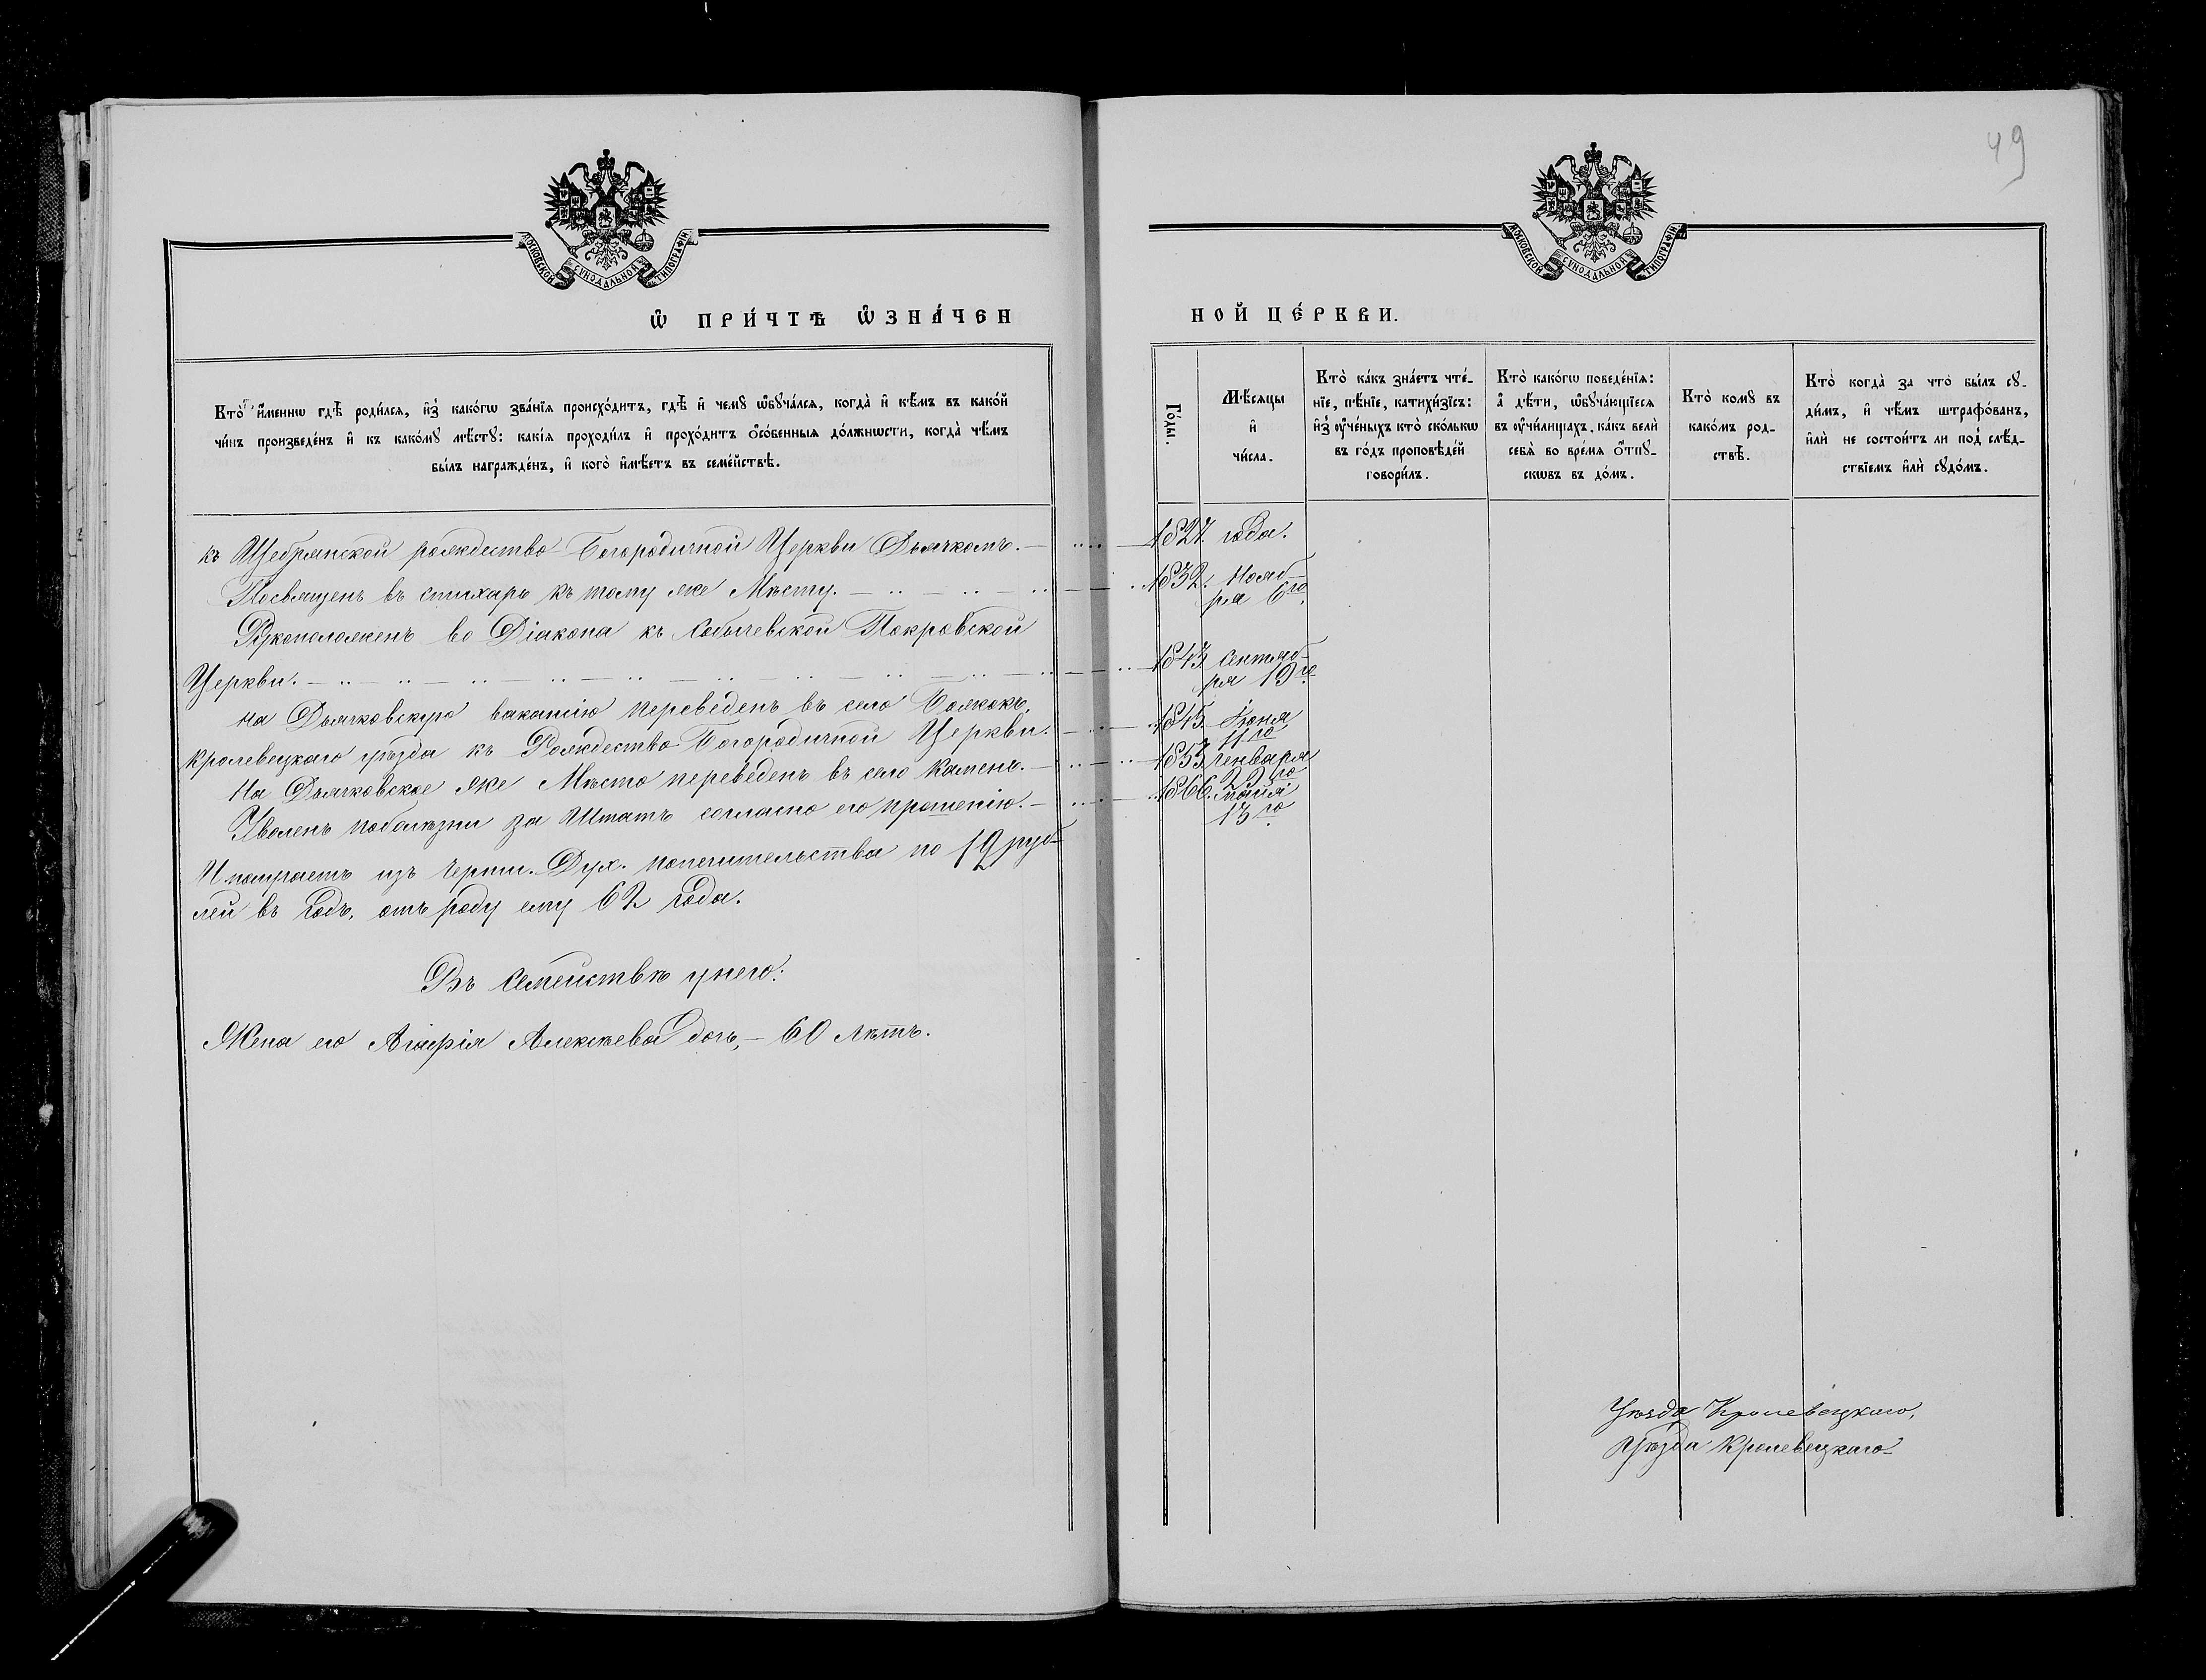 49
МОСКОВСКОЙ СѴНОДАЛЬНОЙ ТИПОГРАФІИ
МОСКОВСКОЙ СѴНОДАЛЬНОЙ ТИПОГРАФІИ
Ѡ ПРИ́ЧТѢ ѠЗНА́ЧЕН
НОЙ ЦЕ́РКВИ.
Кто̀ и҆́менно гдѣ̀ роди́лся, и҆з̾ како́гѡ зва́нїѧ происхо́дитъ, гдѣ̀ и҆ чемꙋ̀ ѡ҆бꙋча́лсѧ, когда̀ и҆ кѣ́мъ въ како́й
чи́нъ произведе́нъ и҆ къ како́мꙋ мѣ́стꙋ: какі́ѧ проходи́лъ и҆ прохо́дитъ ѻ҆со́бенныѧ до́лжнѡсти, когда̀ чѣ́мъ
бы́лъ награжде́нъ, и҆ кого̀ и҆мѣ́етъ въ семе́йствѣ.
Го́ды.
Мѣ́сѧцы
и҆
чи́сла.
Кто̀ ка́къ зна́етъ чте́-
нїе, пѣ́нїе, катихи́зїсъ:
и҆з̾ ᲂу҆че́ныхъ кто̀ ско́лькѡ
въ го́дъ проповѣде́й
говори́лъ.
Кто̀ како́гѡ поведе́нїѧ:
а҆ дѣ́ти, ѡ҆бꙋча́ющїесѧ
въ ᲂу҆чи́лищахъ, ка́къ велѝ
себѐ во вре́мѧ ѻ҆тпꙋ-
скѡвъ въ до́мъ.
Кто̀ комꙋ̀ въ
како́мъ род-
ствѣ̀.
Кто̀ когда̀ за что̀ бы́лъ сꙋ-
ди́мъ, и҆ чѣ́мъ штрафо́ванъ,
и҆лѝ не состои́тъ ли под̾ слѣ́д-
ствїемъ и҆лѝ сꙋдо́мъ.
къ Щебрянской рождество-Богородичной Церкви Дьячкомъ.
1827. года.
Посвященъ въ стихарь къ тому же Мѣсту.
1832. Нояб-
ря 6го.
Рукоположенъ во Діакона къ Собычевской Покровской
Церкви.
1843 Сентяб-
ря 19го
На Дьячковскую вакансію переведенъ въ село
Кролевецкаго уѣзда къ Рождество-Богородичной Церкви.
1845. Іюня
11го
На Дьячковское же Мѣсто переведенъ въ село Камень.
1853 Генваря
29го
Уволенъ поболѣзни за Штатъ согласно его прошенію.
1866. Маія
13го
И получаетъ изъ Черни. Дух. попечительства по 12 руб-
лей въ Годъ, отъ роду ему 62 года.
Въ Семействѣ унего:
Жена его Агафія Алексѣева дочь, – 60 Лѣтъ.
Уѣзда Кролевецкаго,
Уѣзда Кролевецкаго